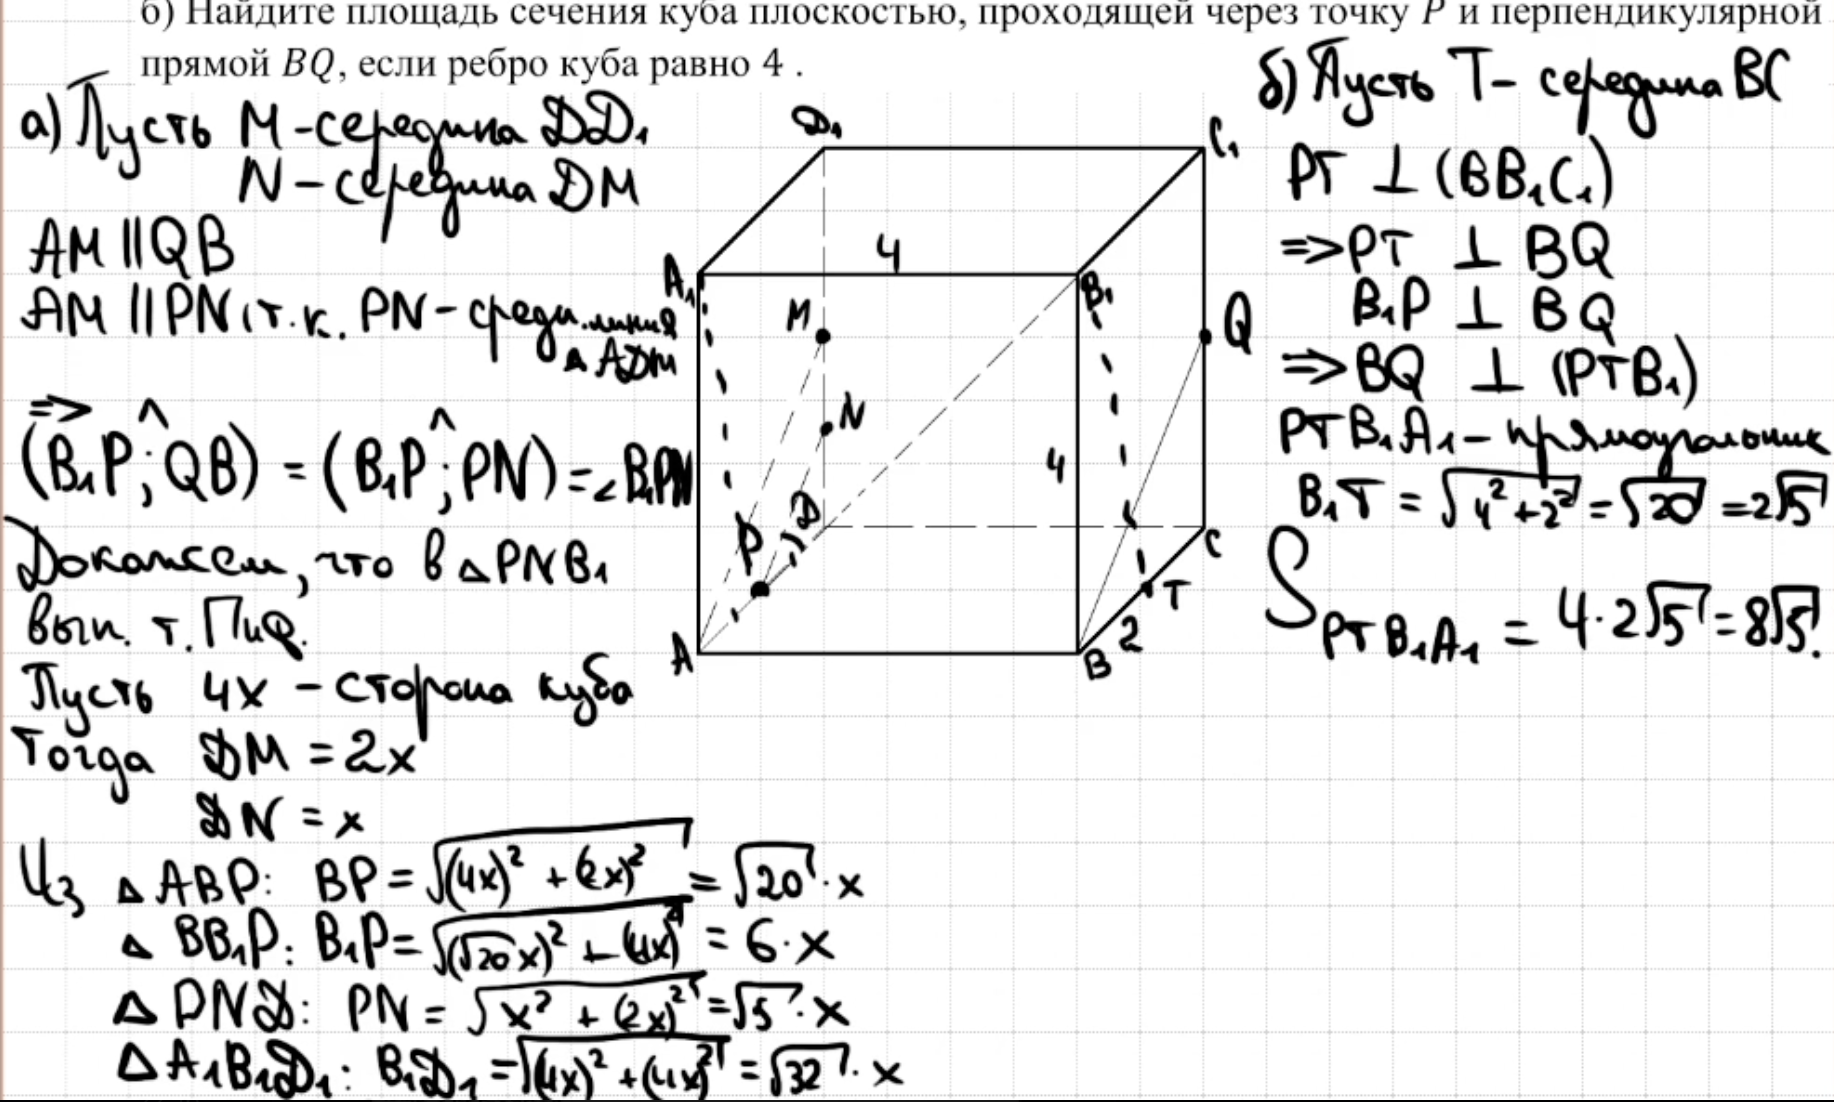 б) Найдите площадь сечения куба плоскостью, проходящей через точку P и перпендикулярной
прямой BQ, если ребро куба равно 4 .
а) Пусть M - середина DD₁
N - середина DM
AM || QB
AM || PN (т.к. PN - средн. линия
△ ADM
=> (B₁P; ^ QB) = (B₁P; ^ PN) = ∠B₁PN
Докажем, что в △PNB₁
вып. т. Пиф.
Пусть 4x - сторона куба
Тогда DM = 2x
DN = x
Из △ABP: BP = √((4x)² + (2x)²) = √20 · x
△ BB₁P: B₁P = √((√20x)² + (4x)²) = 6 · x
△ PND: PN = √(x² + (2x)²) = √5 · x
△ A₁B₁D₁: B₁D₁ = √((4x)² + (4x)²) = √32 · x
D₁
C₁
4
A₁
B₁
M
Q
N
4
D
P
C
T
2
A
B
б) Пусть T - середина BC
PT ⊥ (BB₁C₁)
=> PT ⊥ BQ
B₁P ⊥ BQ
=> BQ ⊥ (PTB₁)
PTB₁A₁ - прямоугольник
B₁T = √(4² + 2²) = √20 = 2√5
S PTB₁A₁ = 4 · 2√5 = 8√5.